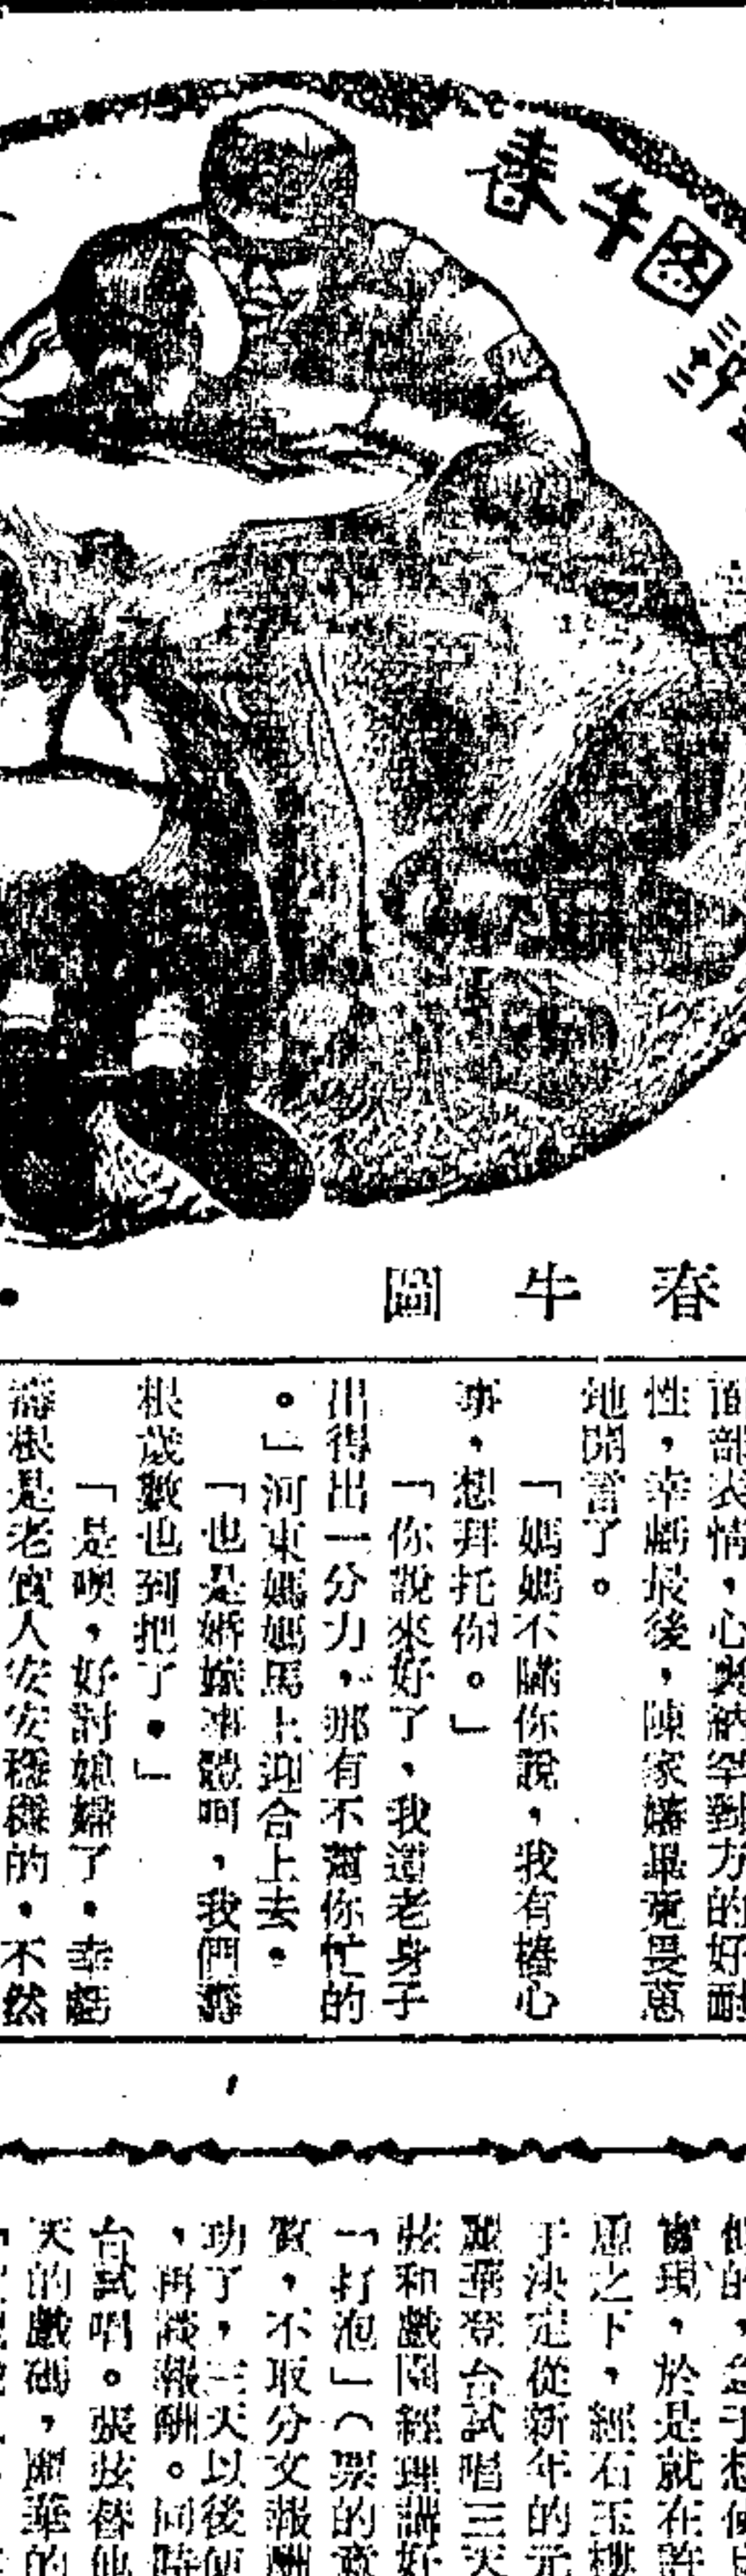 春牛圖
圖牛春
面部表情，心裏納罕到方的好耐
性，幸虧最後，陳家嬸畢竟畏葸
地開言了。
「媽媽不瞞你說，我有樁心
事，想拜托你。」
「你說來好了，我這老身子
出得出一分力，那有不幫你忙的
。」河東媽媽馬上迎合上去。
「也是婚嫁事體呵，我們壽
根歲數也到把了。」
「是㗑，好討媳婦了。幸虧
壽根是老實人安安穩穩的。不然
實現，於是就在許
之下，經石玉
于決定從新年的元
麗華登台試唱三天
弦和戲園經理講好
「打泡」（票的意
質，不取分文報酬
功了，三天以後便
，再談報酬。同時
台試唱。張弦替他
天的戲碼，麗華的